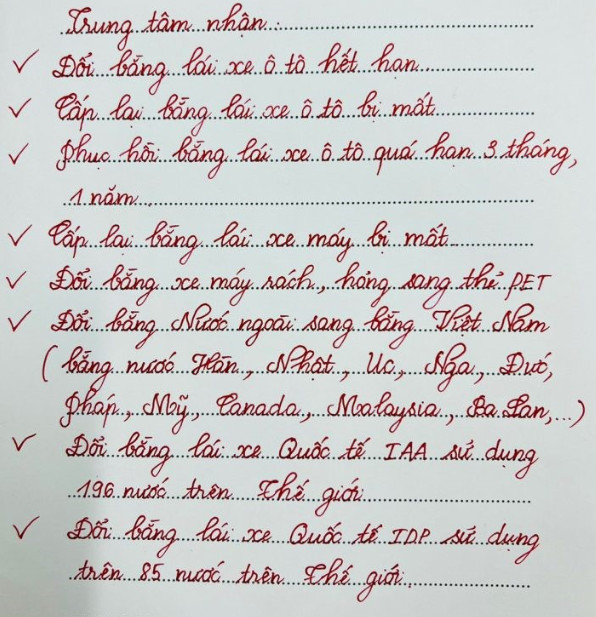 Trung tâm nhận :
✓ Đổi bằng lái xe ô tô hết hạn
✓ Cấp lại bằng lái xe ô tô bị mất
✓ Phục hồi bằng lái xe ô tô quá hạn 3 tháng,
1 năm
✓ Cấp lại bằng lái xe máy bị mất
✓ Đổi bằng xe máy rách, hỏng sang thẻ PET
✓ Đổi bằng Nước ngoài sang bằng Việt Nam
( bằng nước Hàn, Nhật, Úc, Nga, Đức,
Pháp, Mỹ, Canada, Malaysia, Ba Lan,...)
✓ Đổi bằng lái xe Quốc tế IAA sử dụng
196 nước trên Thế giới
✓ Đổi bằng lái xe Quốc tế IDP sử dụng
trên 85 nước trên Thế giới.